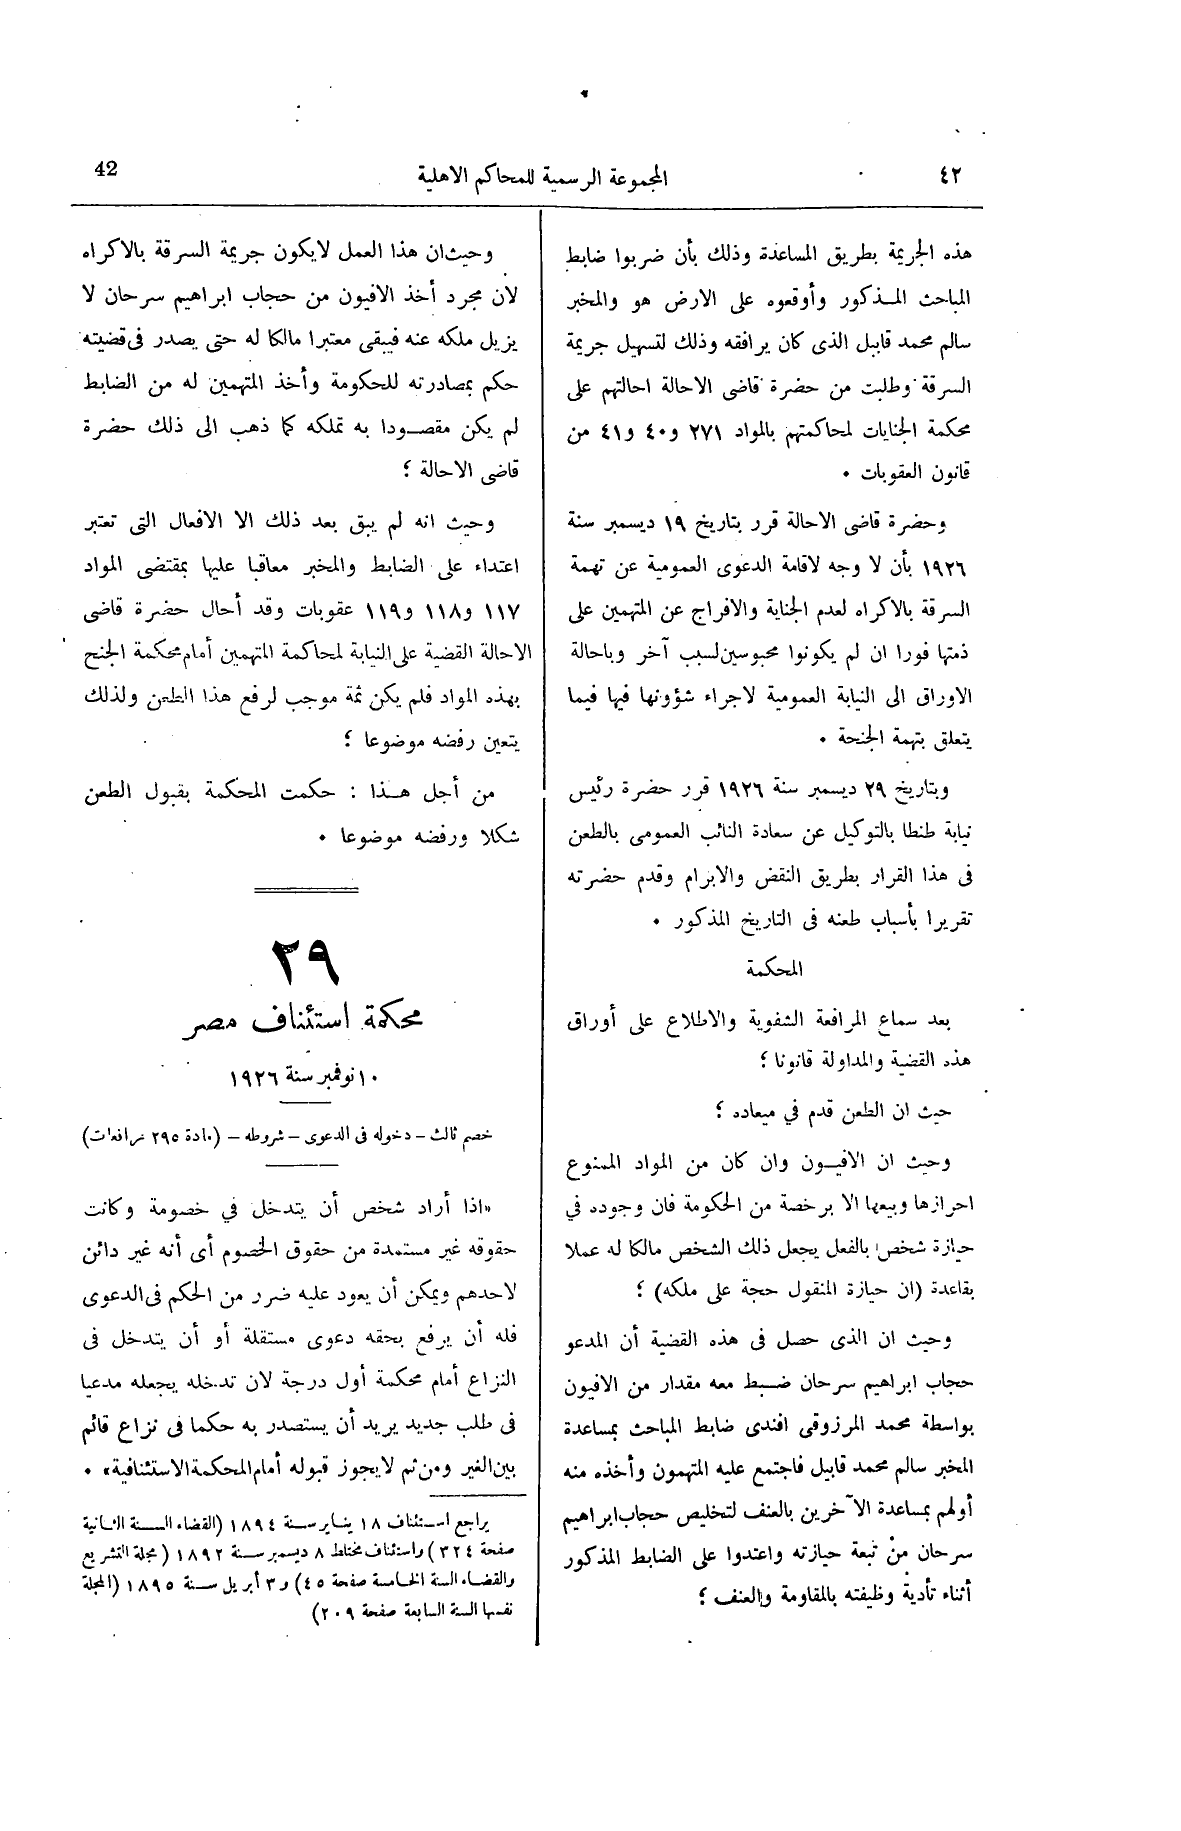 ٤٢
المجموعة الرسمية للمحاكم الاهلية
42
هذه الجريمة بطريق المساعدة وذلك بأن ضربوا ضابط
المباحث المذكور وأوقعوه على الارض هو والمخبر
سالم محمد قابيل الذى كان يرافقه وذلك لتسهيل جريمة
السرقة وطلبت من حضرة قاضى الاحالة احالتهم على
محكمة الجنايات لمحاكمتهم بالمواد ٢٧١ و٤٠ و٤١ من
قانون العقوبات .
وحضرة قاضى الاحالة قرر بتاريخ ١٩ ديسمبر سنة
١٩٢٦ بأن لا وجه لاقامة الدعوى العمومية عن تهمة
السرقة بالاكراه لعدم الجناية والافراج عن المتهمين على
ذمتها فورا ان لم يكونوا محبوسين لسبب آخر وباحالة
الاوراق الى النيابة العمومية لاجراء شؤونها فيها فيما
يتعلق بتهمة الجنحة .
وبتاريخ ٢٩ ديسمبر سنة ١٩٢٦ قرر حضرة رئيس
نيابة طنطا بالتوكيل عن سعادة النائب العمومى بالطعن
فى هذا القرار بطريق النقض والابرام وقدم حضرته
تقريرا بأسباب طعنه فى التاريخ المذكور .
المحكمة
بعد سماع المرافعة الشفوية والاطلاع على أوراق
هذه القضية والمداولة قانونا ؛
حيث ان الطعن قدم في ميعاده ؛
وحيث ان الافيون وان كان من المواد الممنوع
احرازها وبيعها الا برخصة من الحكومة فان وجوده في
حيازة شخص بالفعل يجعل ذلك الشخص مالكا له عملا
بقاعدة (ان حيازة المنقول حجة على ملكه) ؛
وحيث ان الذى حصل فى هذه القضية أن المدعو
حجاب ابراهيم سرحان ضبط معه مقدار من الافيون
بواسطة محمد المرزوقى افندى ضابط المباحث بمساعدة
المخبر سالم محمد قابيل فاجتمع عليه المتهمون وأخذه منه
أولهم بمساعدة الآخرين بالعنف لتخليص حجاب ابراهيم
سرحان من تبعة حيازته واعتدوا على الضابط المذكور
أثناء تأدية وظيفته بالمقاومة والعنف ؛
وحيث ان هذا العمل لايكون جريمة السرقة بالاكراه
لان مجرد أخذ الافيون من حجاب ابراهيم سرحان لا
يزيل ملكه عنه فيبقى معتبرا مالكا له حتى يصدر فى قضيته
حكم بمصادرته للحكومة وأخذ المتهمين له من الضابط
لم يكن مقصودا به تملكه كما ذهب الى ذلك حضرة
قاضى الاحالة ؛
وحيث انه لم يبق بعد ذلك الا الافعال التى تعتبر
اعتداء على الضابط والمخبر معاقبا عليها بمقتضى المواد
١١٧ و١١٨ و١١٩ عقوبات وقد أحال حضرة قاضى
الاحالة القضية على النيابة لمحاكمة المتهمين أمام محكمة الجنح
بهذه المواد فلم يكن ثمة موجب لرفع هذا الطعن ولذلك
يتعين رفضه موضوعا ؛
من أجل هذا : حكمت المحكمة بقبول الطعن
شكلا ورفضه موضوعا .
٢٩
محكمة استئناف مصر
١٠ نوفمبر سنة ١٩٢٦
خصم ثالث - دخوله فى الدعوى - شروطه - (مادة ٢٩٥ مرافعات)
«اذا أراد شخص أن يتدخل في خصومة وكانت
حقوقه غير مستمدة من حقوق الخصوم أى أنه غير دائن
لاحدهم ويمكن أن يعود عليه ضرر من الحكم فى الدعوى
فله أن يرفع بحقه دعوى مستقلة أو أن يتدخل فى
النزاع أمام محكمة أول درجة لان تدخله يجعله مدعيا
فى طلب جديد يريد أن يستصدر به حكما فى نزاع قائم
بين الغير ومن ثم لايجوز قبوله أمام المحكمة الاستئنافية» .
يراجع استئناف ١٨ يناير سنة ١٨٩٤ (القضاء السنة الثانية
صفحة ٣٢٤) واستئناف مختلط ٨ ديسمبر سنة ١٨٩٢ (مجلة التشريع
والقضاء السنة الخامسة صفحة ٤٥) و٣ أبريل سنة ١٨٩٥ (المجلة
نفسها السنة السابعة صفحة ٢٠٩)